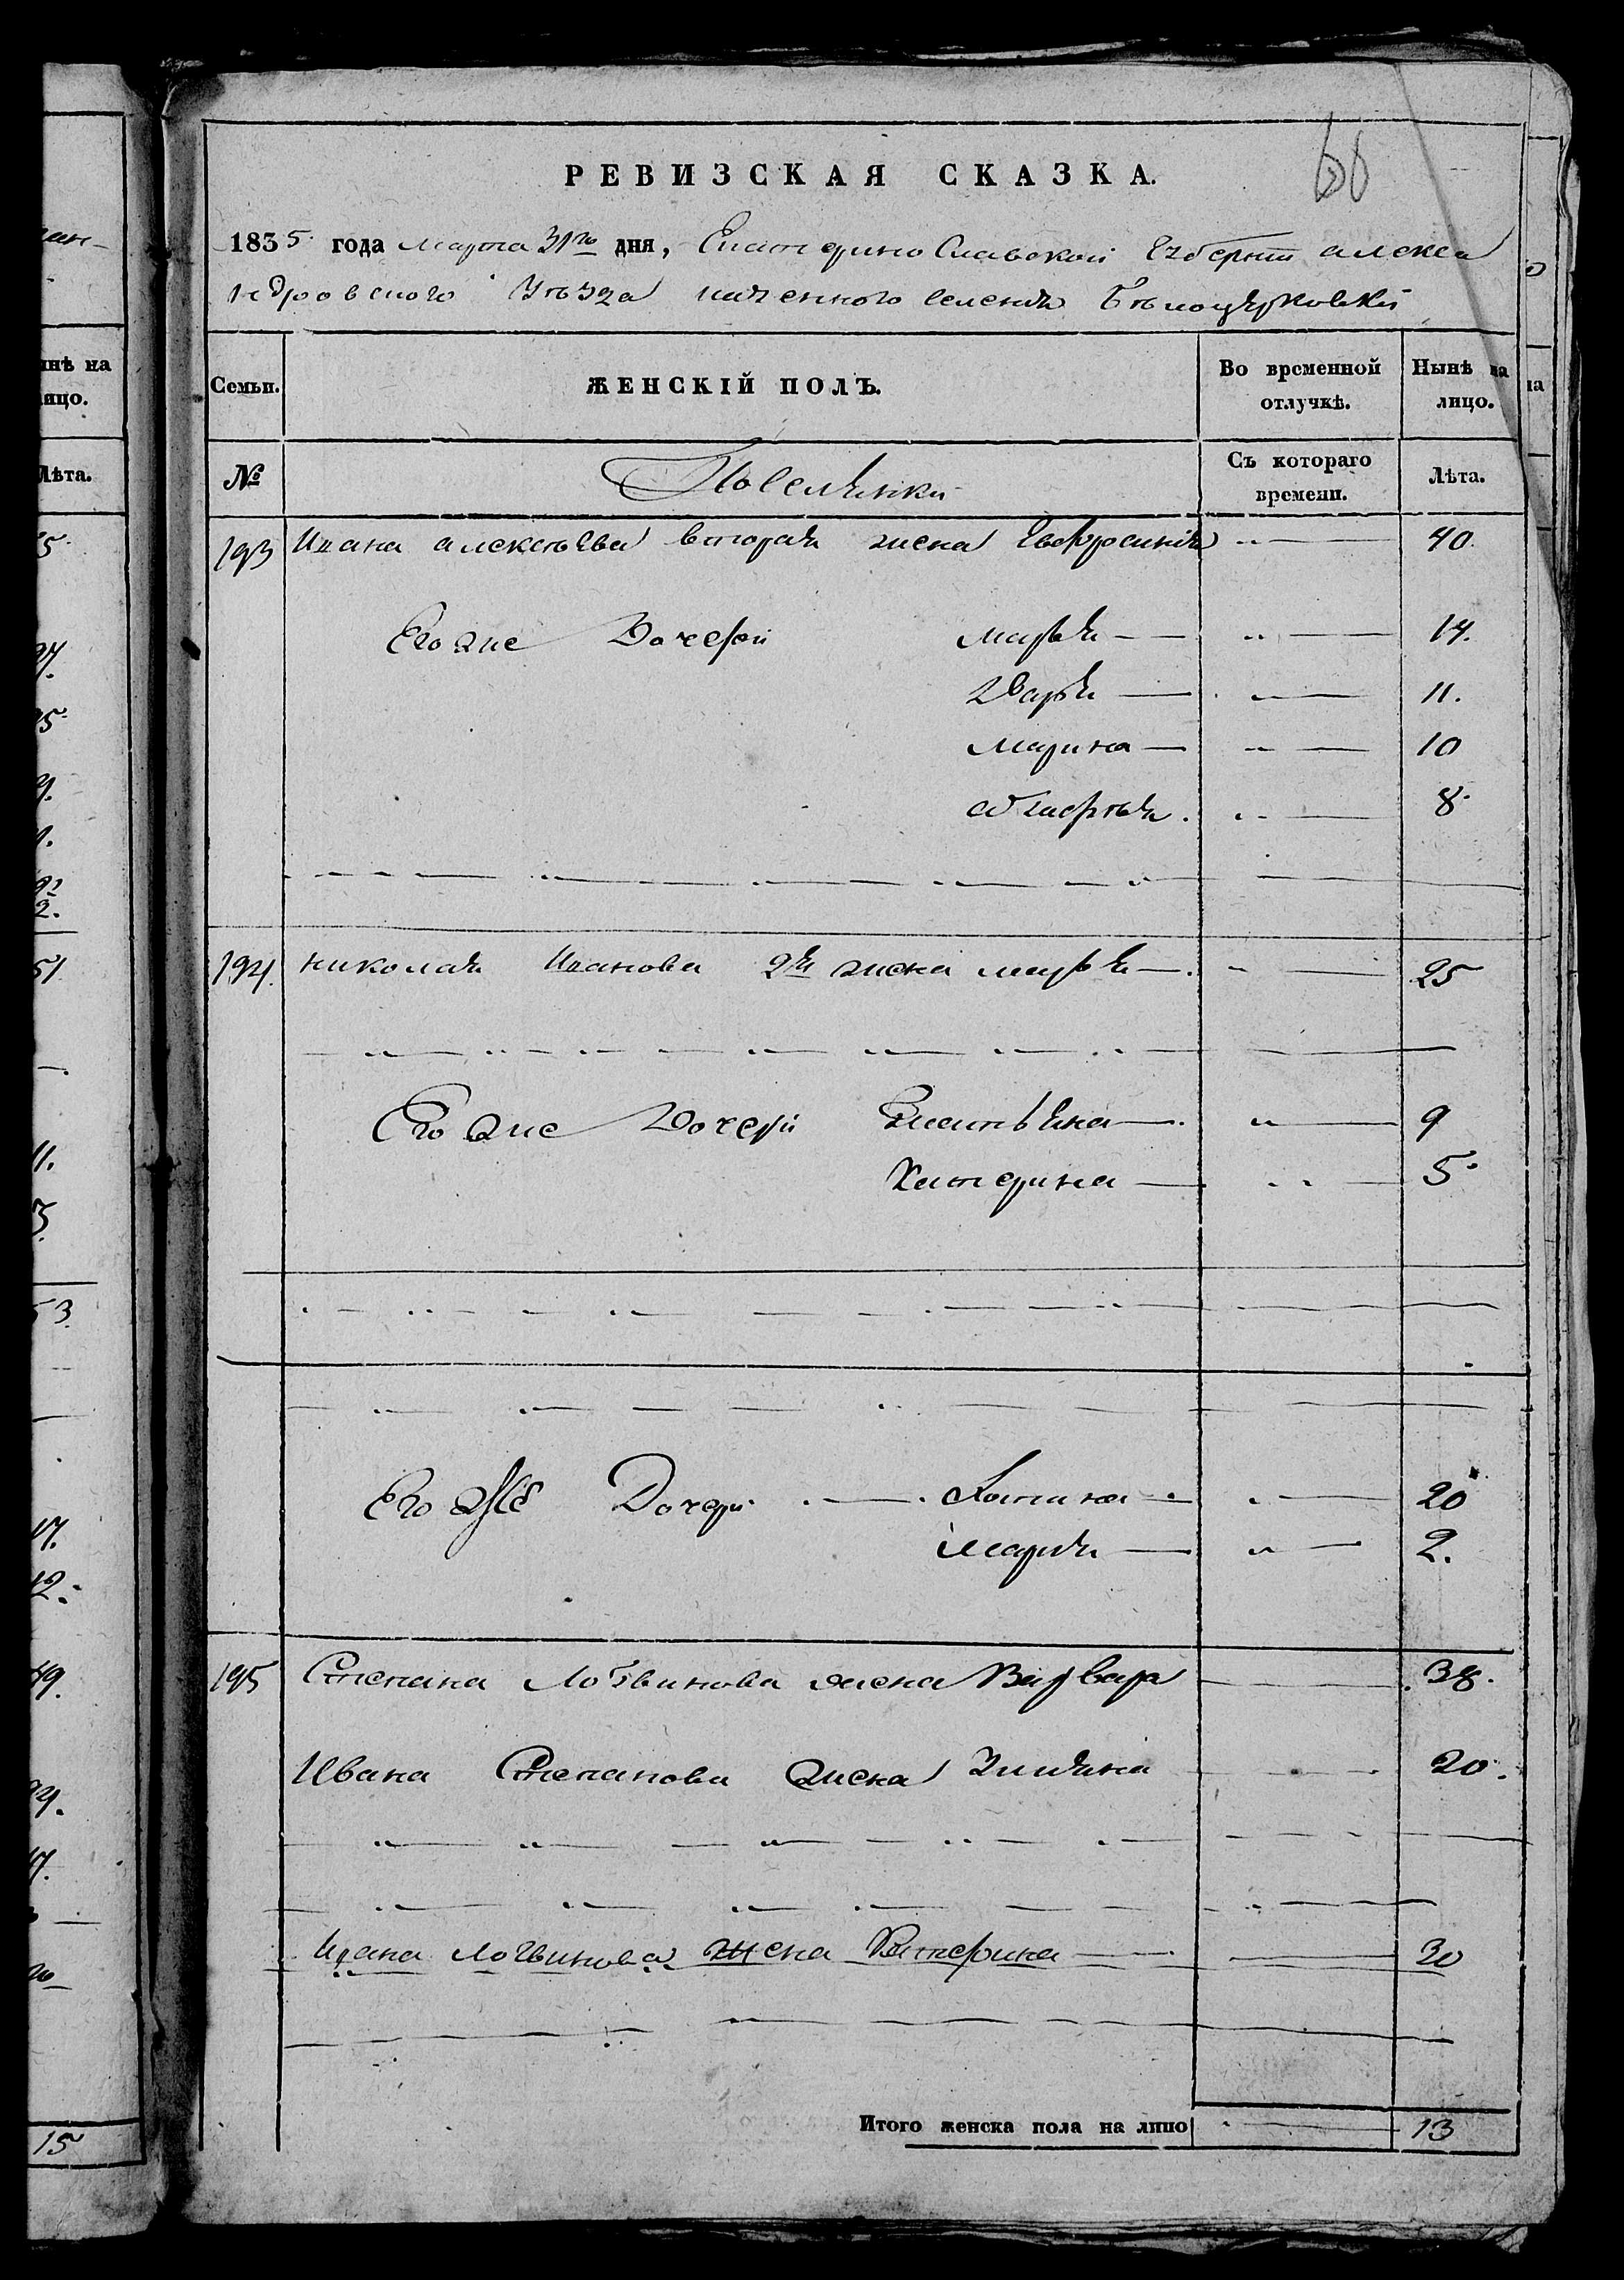 66
РЕВИЗСКАЯ СКАЗКА.
1835. года Марта 31го дня, Екатерино Славской Губернии алекса
ндровского Уѣзда казенного селения Бѣлоцерковки
Семьи.
ЖЕНСКІЙ ПОЛЪ.
Во временной отлучкѣ.
Нынѣ на лицо.
№
Поселянки
Съ котораго времени.
Лѣта.
193 Ивана алексѣева вторая жена Евфросиния 40.
Его же Дочери марья 14.
Дарья 11.
Марина 10
8.
194. николая Иванова 2я жена марья 25
Его же Дочери Татьяна 9
Катерина 5.
Его же Дочери 20
Мария 2.
195 Степана Логвинова жена Варвара 38.
Ивана Степанова жена Ульяна 20.
Ивана Логвинова жена Катерина 30
Итого женска пола на лицо 13
нѣ на
лицо.
Лѣта.
15